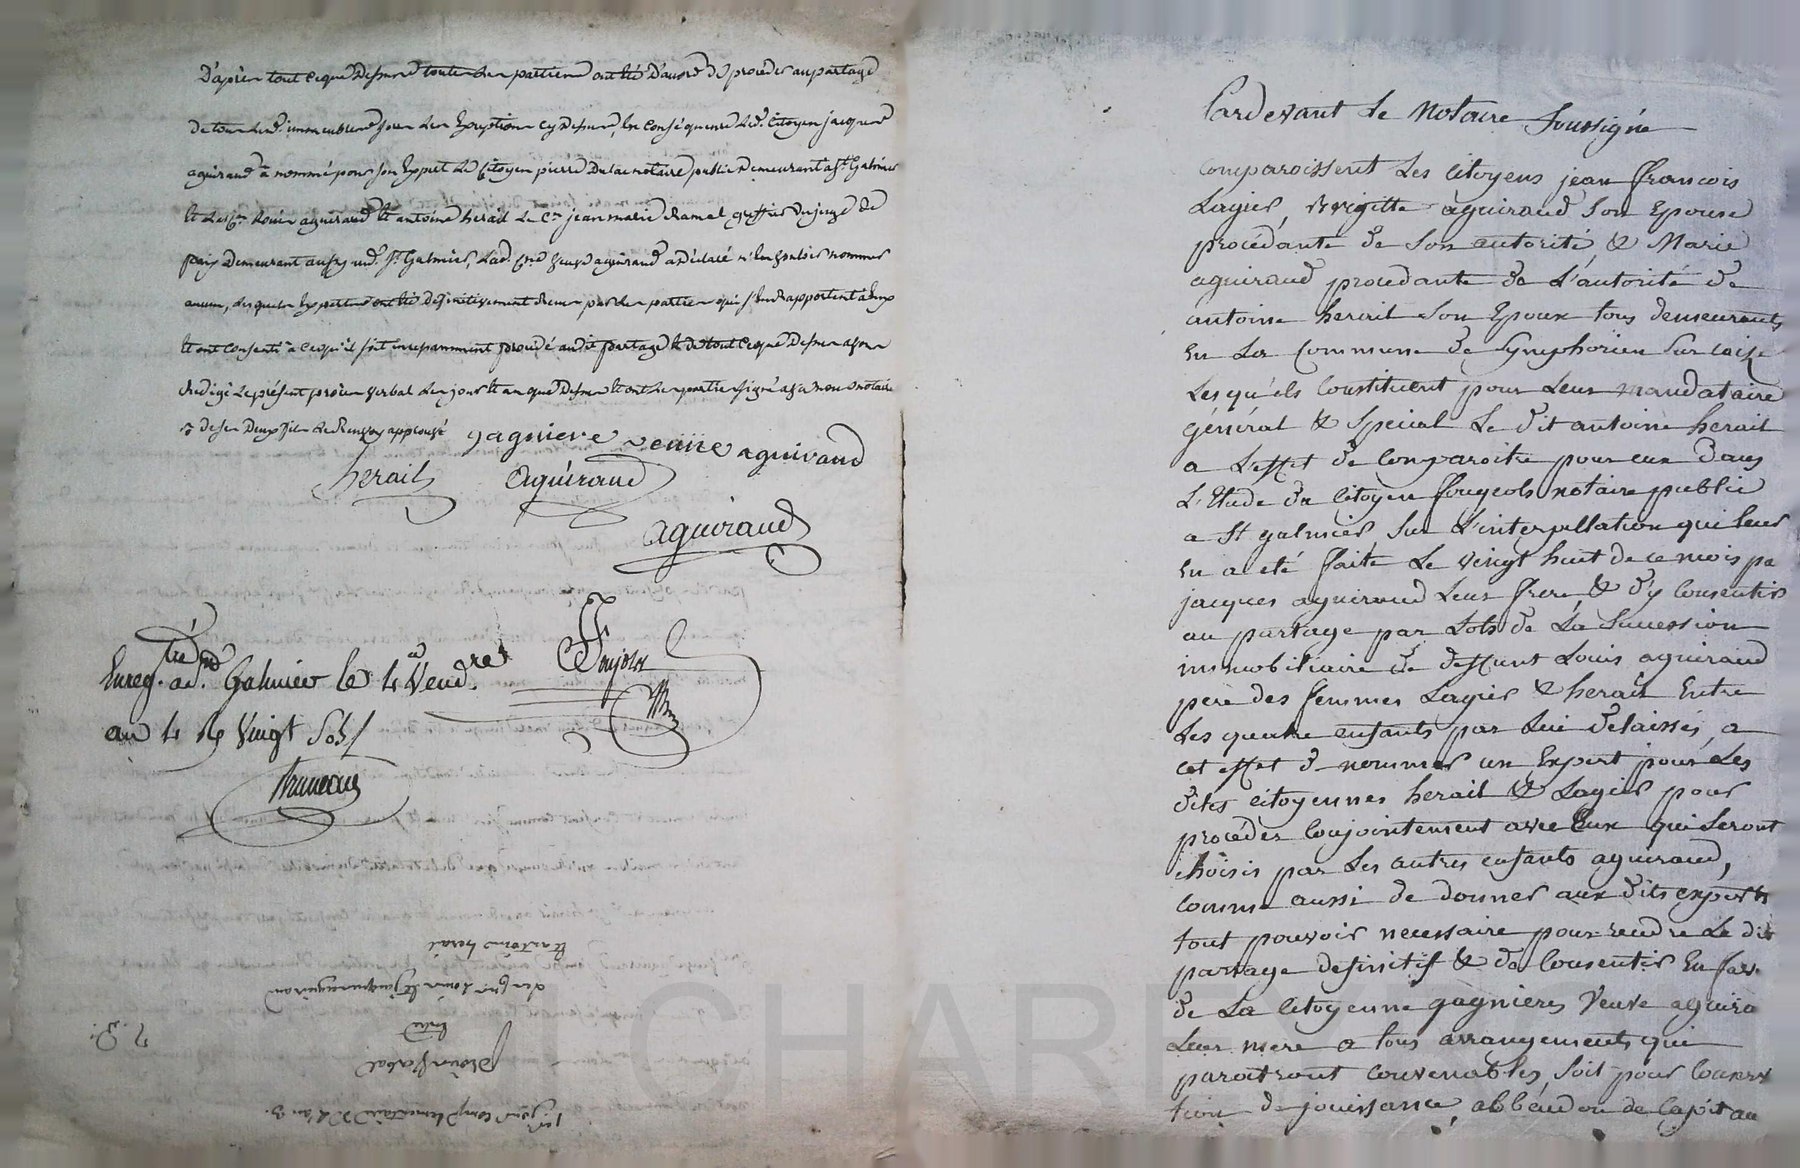 D'après tout ceque Dessus toutes les parties ont été D'avis de procéder au partage
de tous lesd. immeubles sous les Exceptions cy Dessus, En Conséquence Led. Citoyen jacques
aguiraud à nommé pour son Expert Le Citoyen pierre Dulac notaire public Demeurant a St. Galmier
Et Les Cns. Louis aguiraud Et antoine herail Le Cn. jean marie Ramel greffier du juge de
paix Demeurant aussy aud. St. Galmier, Lad. Cne. Veuve aguiraud a Déclaré n'En vouloir nommer
aucun, Lesquels Experts ont été Définitivement Elus par les parties qui s'En Rapportent à Eux
Et ont Consenti à Cequ'il soit incessamment procédé audit partage & de tout Ceque Dessus avons
Rédigé Le présent procès verbal Les jour Et an que Dessus Et ont Les parties signé avec nous notaire
gagniere veuve aguiraud
herail aguiraud
aguiraud
Enreg. tré ad. St. Galmier le 4 Vend. re
an 4 R Vingt Sols
Pardevant Le Notaire Soussigné
Comparoissent Les Citoyens jean françois
Lagier, Brigitte aguiraud Son Epouse
procédante de Son autorité & Marie
aguiraud procedante de L'autorité de
antoine herail Son Epoux tous demeurants
En La Commune de Symphorien Sur Coise
Lesqu'els Constituent pour Leur mandataire
général & Spécial Le dit antoine herail
a L'effet de Comparoitre pour eux Dans
L'Etude du Citoyen fougeols notaire public
a St galmier Sur L'interpellation qui leur
En a été faite Le vingt huit de ce mois pa
jacques aguiraud Leur frere & d'y Consentir
au partage par Lots de La Succession
immobiliaire de deffunt Louis aguiraud
pere des femmes Lagier & herail Entre
Les quatre enfants par Lui délaissés, a
cet effet de nommer un Expert pour Les
dites citoyennes herail & Lagier pour
procéder Conjointement avec Eux qui Seront
choisis par Les autres enfants aguiraud,
Comme aussi de donner aux dits experts
tout pouvoir necessaire pour rendre Le dit
partage definitif & de Consentir En fav
de La Citoyenne gagnieres Veuve aguira
Leur mere a tous arrangements qui
paroitront Convenables, Soit pour Conserv
tion de jouissance, abbandon de Capitau
Et antoine herail
des Cns Louis & jacques aguiraud
Entre
procès Verbal
1er jour complementaire de L'an 3.
CHAREY